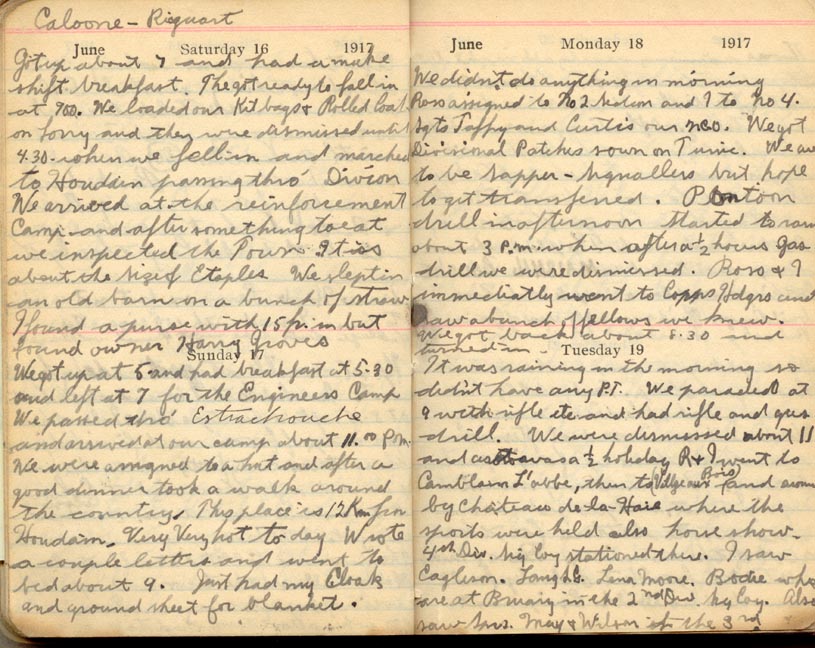 Calonne - Ricquart
June Saturday 16 1917
Got up about 7 and had a make
shift breakfast. The got ready to fall in
at 700. We loaded our Kit bags & Rolled Coat
on lorry and they were dismissed until
4.30 - when we fell in and marched
to Houdain passing thro' Divion
We arrived at the reinforcement
Camp and after something to eat
we inspected the Town. It is
about the size of Etaples We slept in
an old barn on a bunch of straw
I found a purse with 15 fr. in but
found owner Harry Groves
Sunday 17
We got up at 5 and had breakfast at 5.30
and left at 7 for the Engineers Camp
We passed thro' Estrachouche
and arrived at our camp about 11.00 P.m.
We were assigned to a hut and after a
good dinner took a walk around
the country. This place is 12 Km from
Houdain. Very Very hot to day Wrote
a couple letters and went to
bed about 9. Just had my Cloak
and ground sheet for blanket.
June Monday 18 1917
We didn't do anything in morning
Ross assigned to No 2 section and I to No 4.
Sgts Taffy and Curtis our NCO. We got
Divisional Patches sown on Tunic. We are
to be sapper - signallers but hope
to get transferred. Pontoon
drill in afternoon started to rain
about 3 P.m. when after a ½ hours gas
drill we were dismissed. Ross & I
immediatly went to Copps Hdqrs and
saw a bunch of fellows we knew.
We got back about 8.30 and
turned in -
Tuesday 19
It was raining in the morning so
didn't have any P.T. We paraded at
9 with rifle etc and had rifle and gas
drill. We were dismissed about 11
and as it was a ½ holiday R & I went to
Camblain L'abbe, then to (Village aux Bois) and around
by Château de-la-Haie where the
sports were held also horse show.
4th Div. Sig Coy stationed there. I saw
Lena Moore. Bodie who
are at Bruay in the 2nd Div. Sig Coy. Also
saw May & Wilson of the 3rd